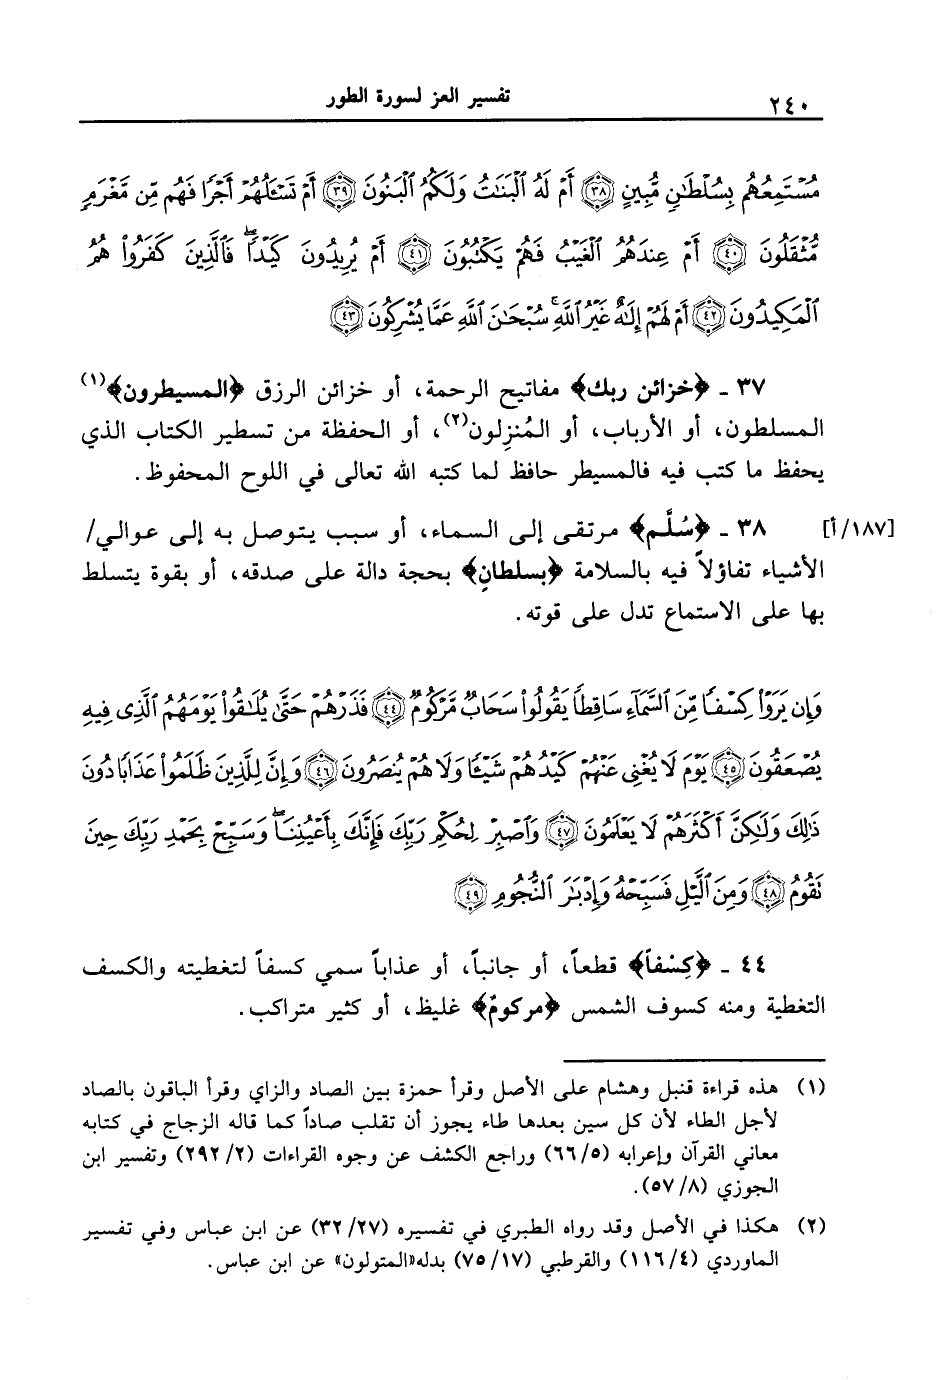 ٢٤٠ تفسير العز لسورة الطور
مُسْتَمِعُهُم بِسُلْطَٰنٍ مُّبِينٍ ﴿٣٨﴾ أَمْ لَهُ ٱلْبَنَٰتُ وَلَكُمُ ٱلْبَنُونَ ﴿٣٩﴾ أَمْ تَسْـَٔلُهُمْ أَجْرًا فَهُم مِّن مَّغْرَمٍ
مُّثْقَلُونَ ﴿٤٠﴾ أَمْ عِندَهُمُ ٱلْغَيْبُ فَهُمْ يَكْتُبُونَ ﴿٤١﴾ أَمْ يُرِيدُونَ كَيْدًا ۖ فَٱلَّذِينَ كَفَرُوا۟ هُمُ
ٱلْمَكِيدُونَ ﴿٤٢﴾ أَمْ لَهُمْ إِلَٰهٌ غَيْرُ ٱللَّهِ ۚ سُبْحَٰنَ ٱللَّهِ عَمَّا يُشْرِكُونَ ﴿٤٣﴾
٣٧ ـ ﴿خزائن ربك﴾ مفاتيح الرحمة، أو خزائن الرزق ﴿المسيطرون﴾(١)
المسلطون، أو الأرباب، أو المُنزِلون(٢)، أو الحفظة من تسطير الكتاب الذي
يحفظ ما كتب فيه فالمسيطر حافظ لما كتبه الله تعالى في اللوح المحفوظ.
[١٨٧/أ] ٣٨ ـ ﴿سُلَّم﴾ مرتقى إلى السماء، أو سبب يتوصل به إلى عوالي/
الأشياء تفاؤلاً فيه بالسلامة ﴿بسلطانٍ﴾ بحجة دالة على صدقه، أو بقوة يتسلط
بها على الاستماع تدل على قوته.
وَإِن يَرَوْا۟ كِسْفًا مِّنَ ٱلسَّمَآءِ سَاقِطًا يَقُولُوا۟ سَحَابٌ مَّرْكُومٌ ﴿٤٤﴾ فَذَرْهُمْ حَتَّىٰ يُلَٰقُوا۟ يَوْمَهُمُ ٱلَّذِى فِيهِ
يُصْعَقُونَ ﴿٤٥﴾ يَوْمَ لَا يُغْنِى عَنْهُمْ كَيْدُهُمْ شَيْـًٔا وَلَا هُمْ يُنصَرُونَ ﴿٤٦﴾ وَإِنَّ لِلَّذِينَ ظَلَمُوا۟ عَذَابًا دُونَ
ذَٰلِكَ وَلَٰكِنَّ أَكْثَرَهُمْ لَا يَعْلَمُونَ ﴿٤٧﴾ وَٱصْبِرْ لِحُكْمِ رَبِّكَ فَإِنَّكَ بِأَعْيُنِنَا ۖ وَسَبِّحْ بِحَمْدِ رَبِّكَ حِينَ
تَقُومُ ﴿٤٨﴾ وَمِنَ ٱلَّيْلِ فَسَبِّحْهُ وَإِدْبَٰرَ ٱلنُّجُومِ ﴿٤٩﴾
٤٤ ـ ﴿كِسْفاً﴾ قطعاً، أو جانباً، أو عذاباً سمي كسفاً لتغطيته والكسف
التغطية ومنه كسوف الشمس ﴿مركومٌ﴾ غليظ، أو كثير متراكب.
(١) هذه قراءة قنبل وهشام على الأصل وقرأ حمزة بين الصاد والزاي وقرأ الباقون بالصاد
لأجل الطاء لأن كل سين بعدها طاء يجوز أن تقلب صاداً كما قاله الزجاج في كتابه
معاني القرآن وإعرابه (٦٦/٥) وراجع الكشف عن وجوه القراءات (٢٩٢/٢) وتفسير ابن
الجوزي (٥٧/٨).
(٢) هكذا في الأصل وقد رواه الطبري في تفسيره (٣٢/٢٧) عن ابن عباس وفي تفسير
الماوردي (١١٦/٤) والقرطبي (٧٥/١٧) بدله«المتولون» عن ابن عباس.